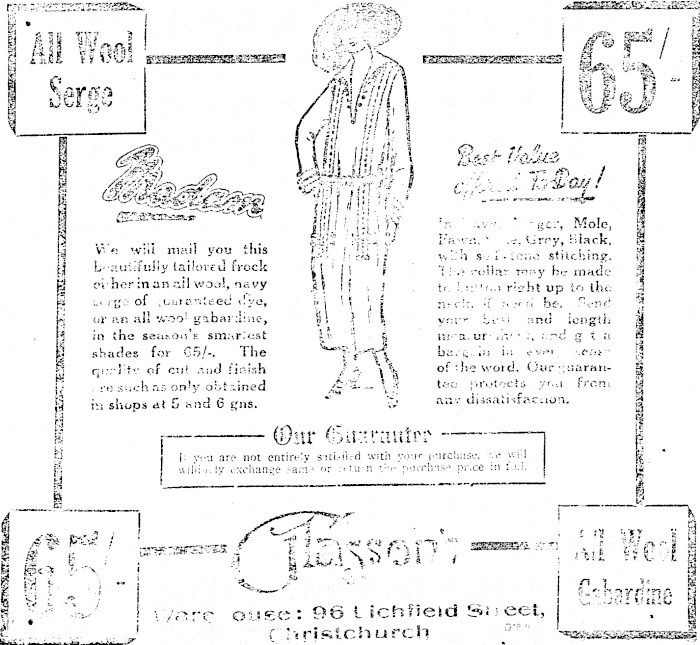 All Wool
Serge
65/-
Madam
We will mail you this
beautifully tailored frock
either in an all wool, navy
serge of guaranteed dye,
or an all wool gabardine,
in the season's smartest
shades for 65/-. The
quality of cut and finish
are such as only obtained
in shops at 5 and 6 gns.
Best Value
offered To-Day!
In Mole,
Fawn, Grey, Black,
with self-tone stitching.
The collar may be made
to button right up to the
neck if need be. Send
your bust and length
measurements, and get a
bargain in every sense
of the word. Our guaran-
tee protects you from
any dissatisfaction.
Our Guarantee
If you are not entirely satisfied with your purchase, we will
willingly exchange same or return the purchase price in full.
65/-
Glasson's
All Wool
Gabardine
Warehouse: 96 Lichfield Street,
Christchurch